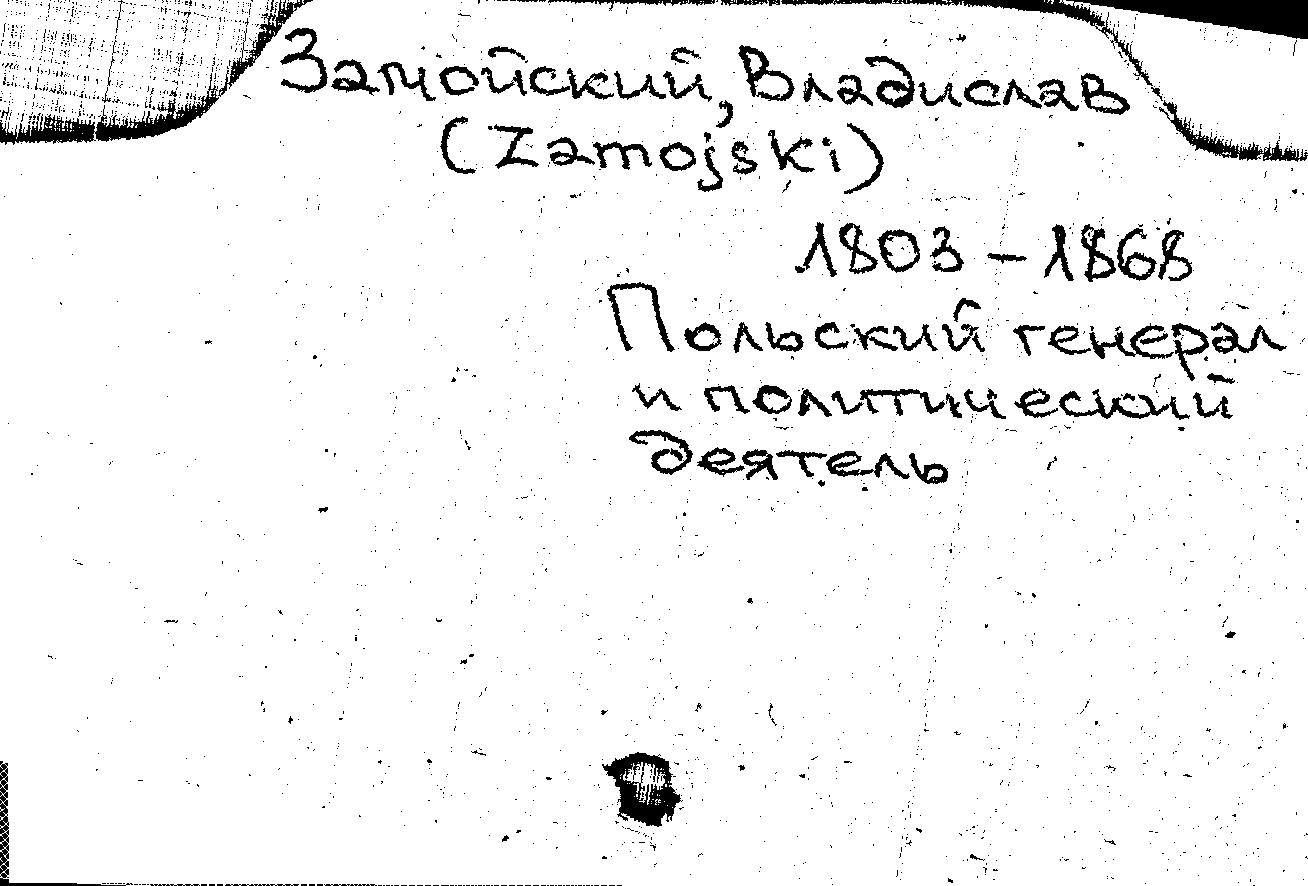 Замойский, Владислав
(Zamojski)
1803 – 1868
Польский генерал
и политический
деятель